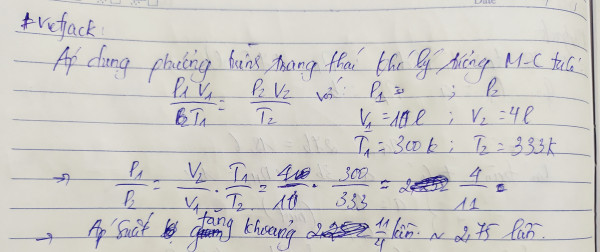 * Vietjack:
Áp dụng phương trình trạng thái khí lý tưởng M-C ta có
P₁ V₁ / T₁ = P₂ V₂ / T₂ với P₁ ; P₂
V₁ = 10 l ; V₂ = 4 l
T₁ = 300 k ; T₂ = 333 k
→ P₁ / P₂ = V₂ / V₁ . T₁ / T₂ = 4 / 10 . 300 / 333 = 4 / 11
→ Áp suất tăng khoảng 11/4 lần ~ 2,75 lần.